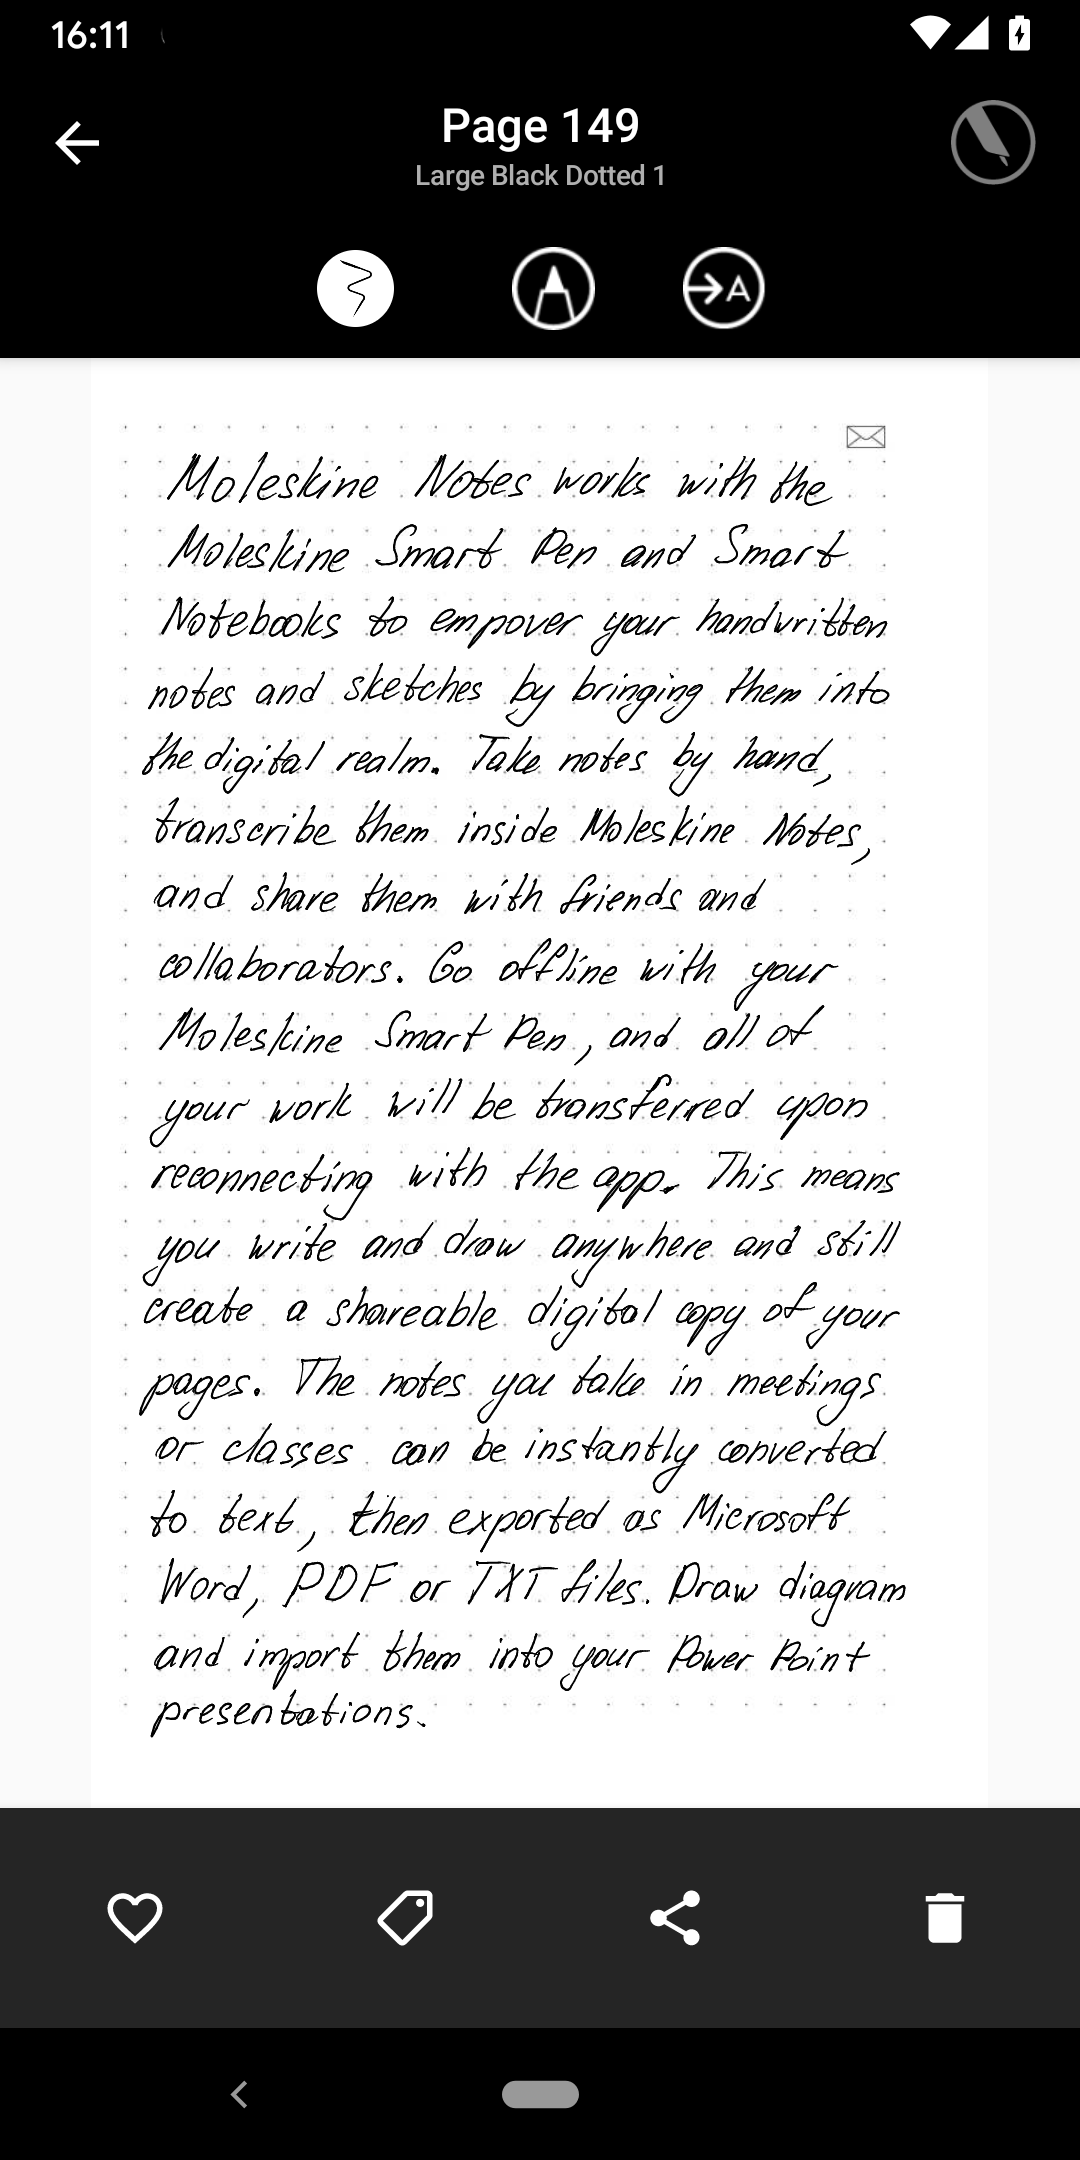 16:11
Page 149
Large Black Dotted 1
A
Moleskine Notes works with the
Moleskine Smart Pen and Smart
Notebooks to empover your handwritten
notes and sketches by bringing them into
the digital realm. Take notes by hand,
transcribe them inside Moleskine Notes,
and share them with friends and
collaborators. Go offline with your
Moleskine Smart Pen, and all of
your work will be transferred upon
reconnecting with the app. This means
you write and draw anywhere and still
create a shareable digital copy of your
pages. The notes you take in meetings
or classes can be instantly converted
to text, then exported as Microsoft
Word, PDF or TXT files. Draw diagram
and import them into your Power Point
presentations.